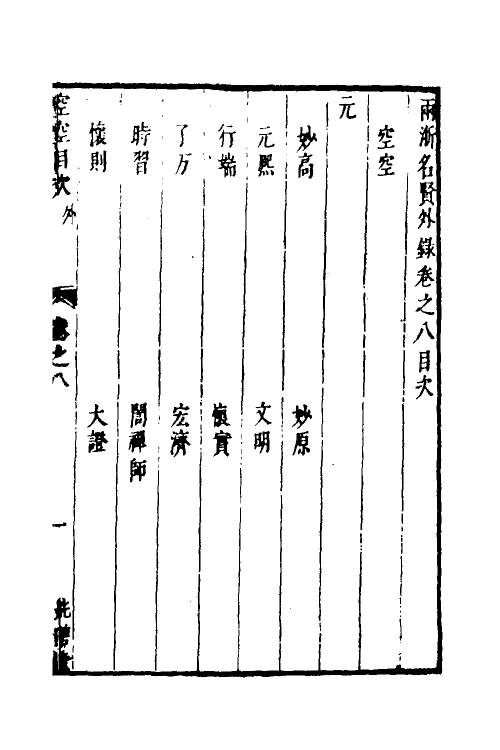 兩浙名賢外錄卷之八目次
空空
元
妙高 妙原
元熙 文明
行端 懷實
了万 宏濟
時習 誾禪師
懷則 大證
空空目次 外 卷之八 一